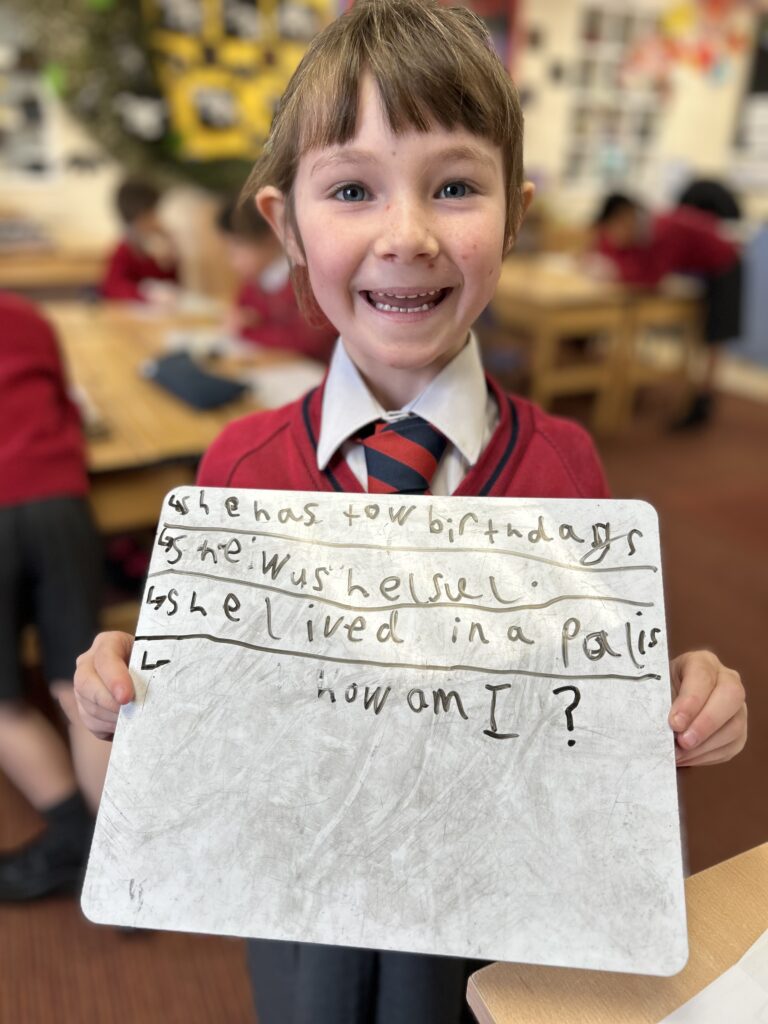 she has tow birthdays
she wus helsul.
she lived in a palis
how am I ?